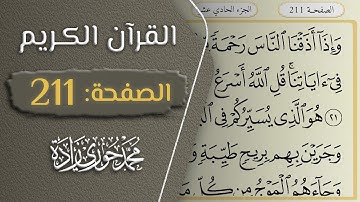 القرآن الكريم
الصفحة: 211
محمد حوري زادة
الصفحة 211
الجزء الحادي عشر
وَإِذَا أَذَقْنَا ٱلنَّاسَ رَحْمَةً
فِىٓ ءَايَاتِنَا ۚ قُلِ ٱللَّهُ أَسْرَعُ
٢١ هُوَ ٱلَّذِى يُسَيِّرُكُمْ فِى
وَجَرَيْنَ بِهِم بِرِيحٍ طَيِّبَةٍ
وَجَآءَهُمُ ٱلْمَوْجُ مِن كُلِّ